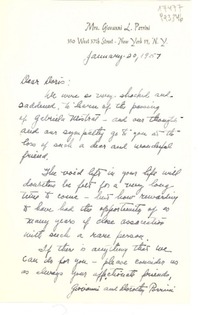 17477
Mrs. Giovanni L. Perrini
350 West 57th Street - New York 19, N. Y.
January 20, 1957
Dear Doris:
We were so very shocked and
saddened, to learn of the passing
of Gabriela Mistral - and our thoughts
and our sympathy go to you in the
loss of such a dear and wonderful
friend.
The void left in your life will
doubtless be felt for a very long
time to come - but how rewarding
to have had the opportunity of so
many years of close association
with such a rare person.
If there is anything that we
can do for you - please consider us
as always your affectionate friends,
Giovanni and Dorothy Perrini